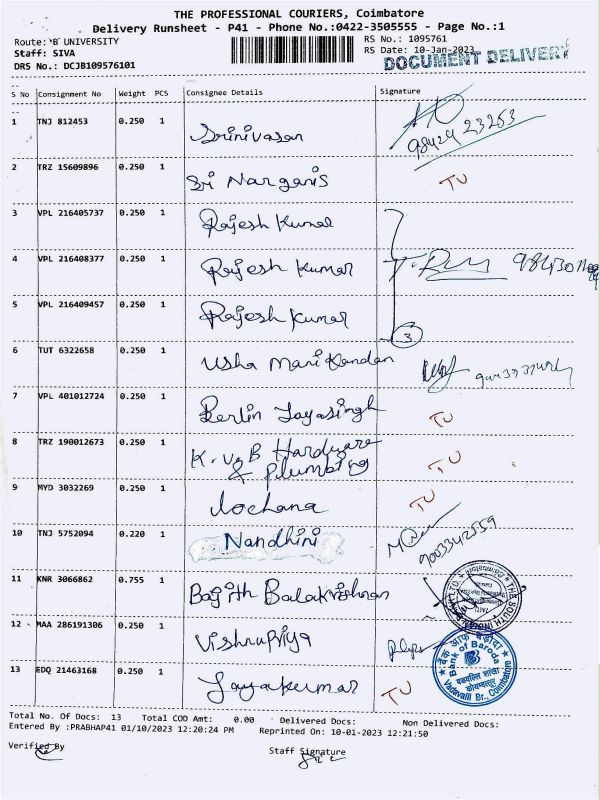 THE PROFESSIONAL COURIERS, Coimbatore
Delivery Runsheet - P41 - Phone No.:0422-3505555 - Page No.:1
Route: 'B' UNIVERSITY
RS No.: 1095761
Staff: SIVA
RS Date: 10-Jan-2023
DOCUMENT DELIVERY
DRS No.: DCJB109576101
S No Consignment No Weight PCS Consignee Details Signature
1 TNJ 812453 0.250 1 Srinivasan 98424 23253
2 TRZ 15609896 0.250 1 Sri Narganis TU
3 VPL 216405737 0.250 1 Rajesh Kumar
4 VPL 216408377 0.250 1 Rajesh Kumar
5 VPL 216409457 0.250 1 Rajesh Kumar 3
6 TUT 6322658 0.250 1 Usha Mani Kandan
7 VPL 401012724 0.250 1 Berlin Jayasingh TU
8 TRZ 190012673 0.250 1 K.V.B Hardware & Plumbing TU
9 MYD 3032269 0.250 1 Lochana TU
10 TNJ 5752094 0.220 1 Nandhini 9003342559
11 KNR 3066862 0.755 1 Bajith Balakrishnan
THE SOUTH INDIAN BANK LTD.
12 - MAA 286191306 0.250 1 VishnuPriya
बैंक ऑफ़ बड़ौदा
Bank of Baroda
वडवल्लि शाखा
कोयम्बत्तूर
Vadavalli Br., Coimbatore
13 EDQ 21463168 0.250 1 Jayakumar TU
Total No. Of Docs: 13 Total COD Amt: 0.00 Delivered Docs: Non Delivered Docs:
Entered By :PRABHAP41 01/10/2023 12:20:24 PM Reprinted On: 10-01-2023 12:21:50
Verified By Staff Signature